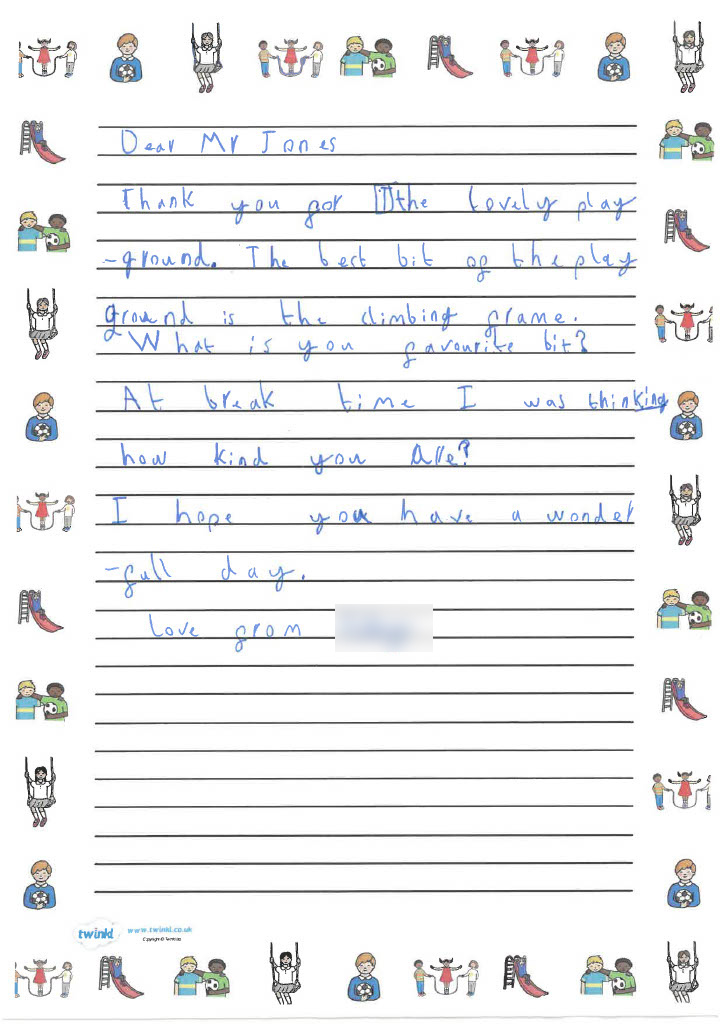 Dear Mr Jones
Thank you for the lovely play
-ground. The best bit of the play
ground is the climbing frame.
What is you favourite bit?
At break time I was thinking
how kind you are?
I hope you have a wonder
-full day.
Love from
twinkl www.twinkl.co.uk